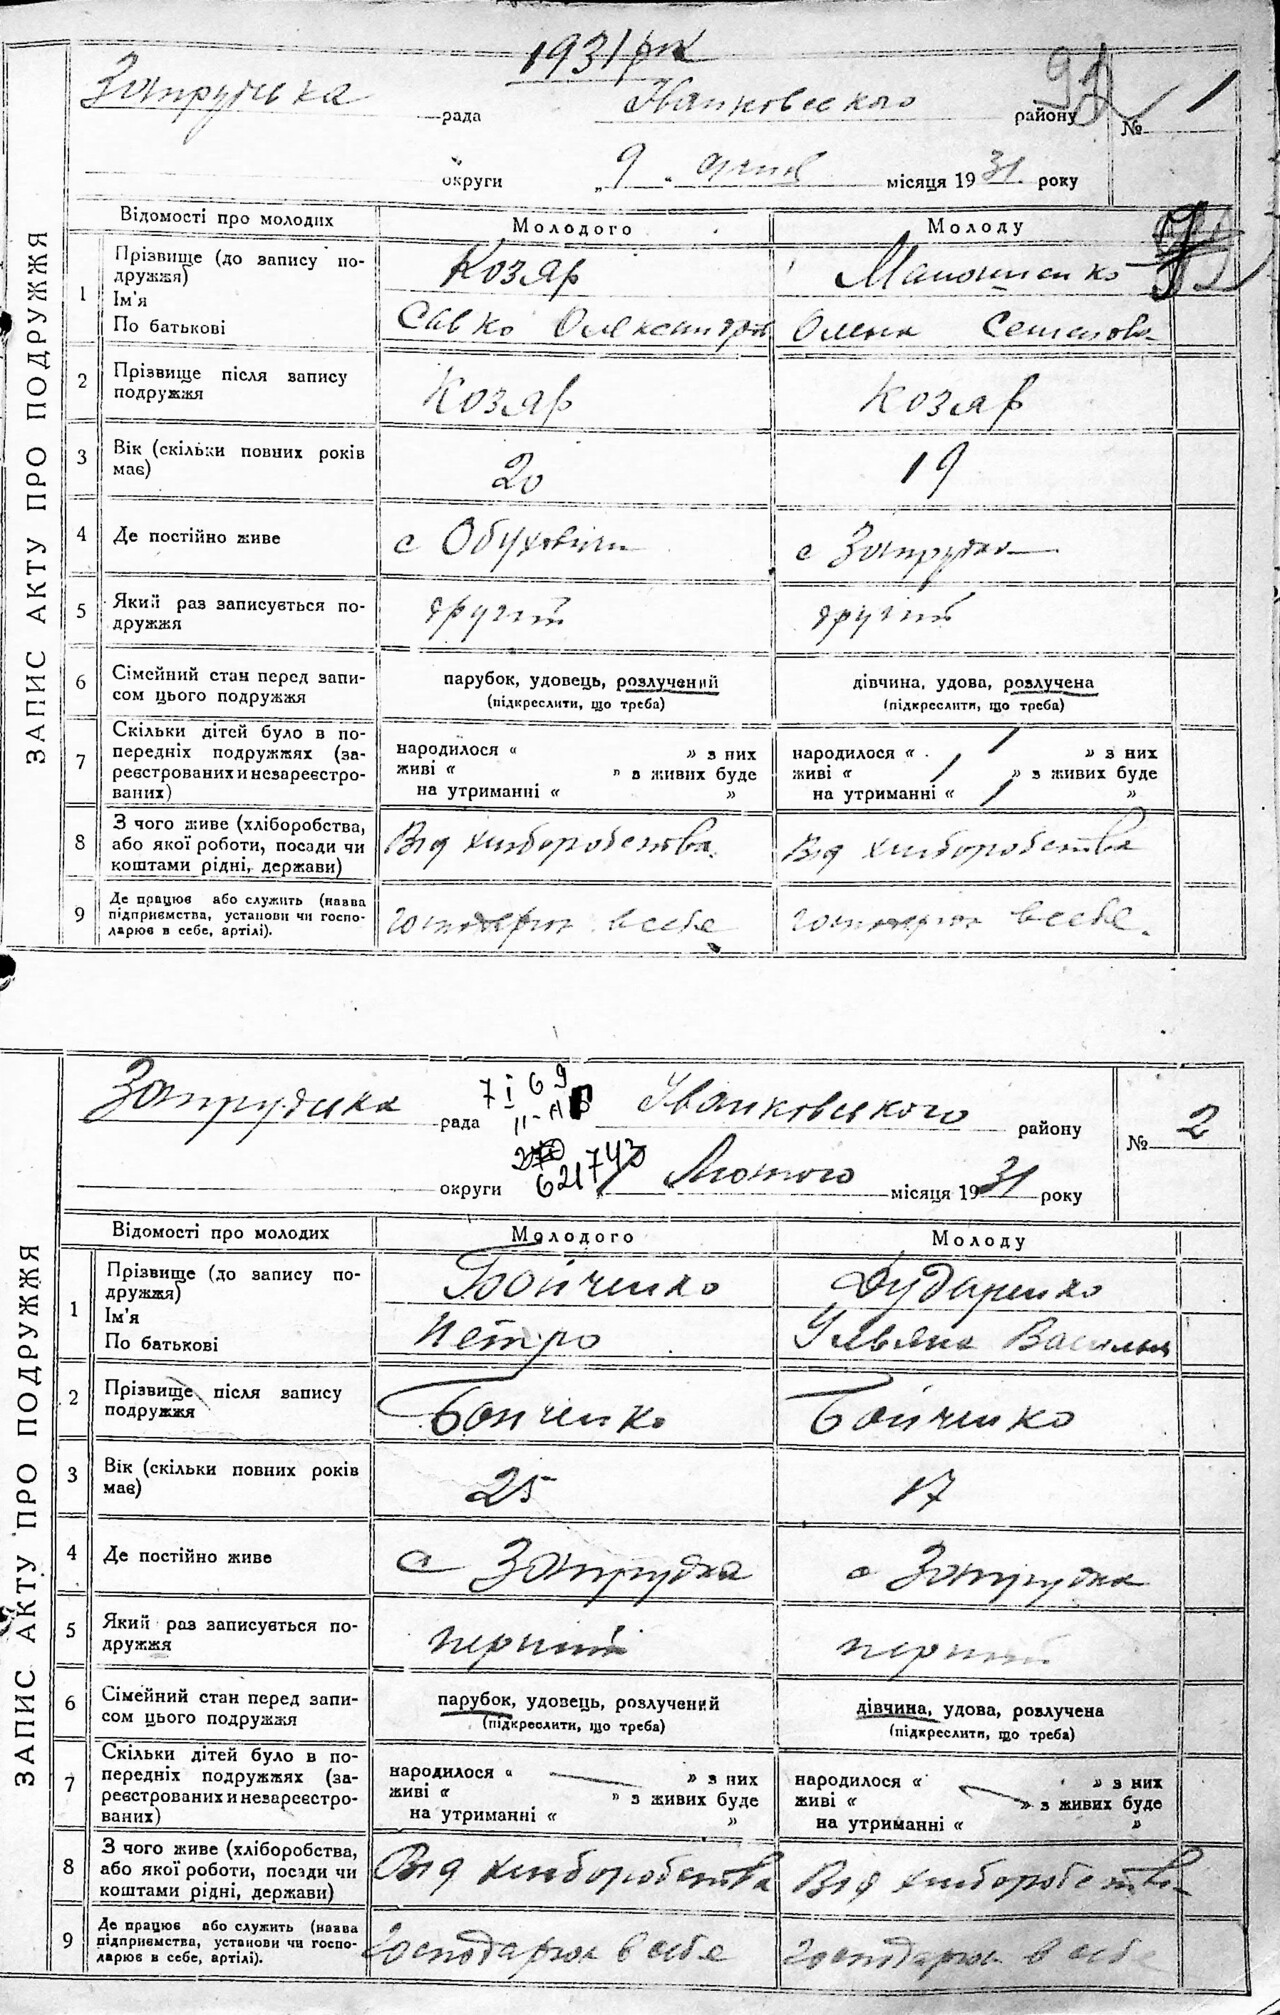 1931 рік
Запрудська рада Іванковського району № 1
округи „9" січня місяця 1931 року
ЗАПИС АКТУ ПРО ПОДРУЖЖЯ
Відомості про молодих Молодого Молоду
1 Прізвище (до запису по-
дружжя) Козяр
Ім'я
По батькові Савко Олександров Олена
2 Прізвище після запису
подружжя Козяр Козяр
3 Вік (скільки повних років
має) 20 19
4 Де постійно живе с Обуховичи с Запрудка
5 Який раз записується по-
дружжя другий другий
6 Сімейний стан перед запи-
сом цього подружжя парубок, удовець, розлучений дівчина, удова, розлучена
(підкреслити, що треба) (підкреслити, що треба)
7 Скільки дітей було в по-
передніх подружжях (за-
реєстрованих и незареєстро-
ваних)
народилося “ ” з них народилося “ 1 ” з них
живі “ ” з живих буде живі “ 1 ” з живих буде
на утриманні “ ” на утриманні “ 1 ”
8 З чого живе (хліборобства,
або якої роботи, посади чи
коштами рідні, держави) Від хліборобства Від хліборобства
9 Де працює або служить (назва
підприємства, установи чи госпо-
дарює в себе, артілі). господарює в себе господарює в себе.
Запрудська рада Іванковського району № 2
округи Лютого місяця 1931 року
ЗАПИС АКТУ ПРО ПОДРУЖЖЯ
Відомості про молодих Молодого Молоду
1 Прізвище (до запису по-
дружжя) Бойченко Дударенко
Ім'я
По батькові Петро Ульяна Васильів
2 Прізвище після запису
подружжя Бойченко Бойченко
3 Вік (скільки повних років
має) 25 17
4 Де постійно живе с Запрудка с Запрудка
5 Який раз записується по-
дружжя перший перший
6 Сімейний стан перед запи-
сом цього подружжя парубок, удовець, розлучений дівчина, удова, розлучена
(підкреслити, що треба) (підкреслити, що треба)
7 Скільки дітей було в по-
передніх подружжях (за-
реєстрованих и незареєстро-
ваних)
народилося “ ” з них народилося “ ” з них
живі “ ” з живих буде живі “ ” з живих буде
на утриманні “ ” на утриманні “ ”
8 З чого живе (хліборобства,
або якої роботи, посади чи
коштами рідні, держави) Від хліборобства Від хліборобства
9 Де працює або служить (назва
підприємства, установи чи госпо-
дарює в себе, артілі). Господарює в себе Господарює в себе